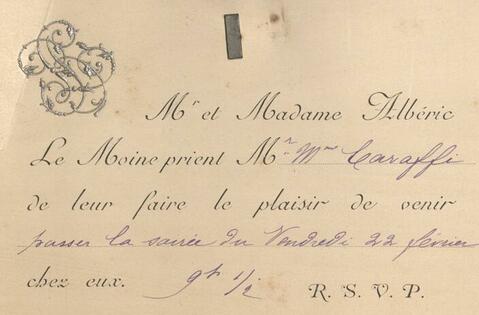 Mr et Madame Albéric
Le Moine prient Mr Mme Caraffi
de leur faire le plaisir de venir
passer la soirée du Vendredi 22 février
chez eux. 9h 1/2 R. S. V. P.